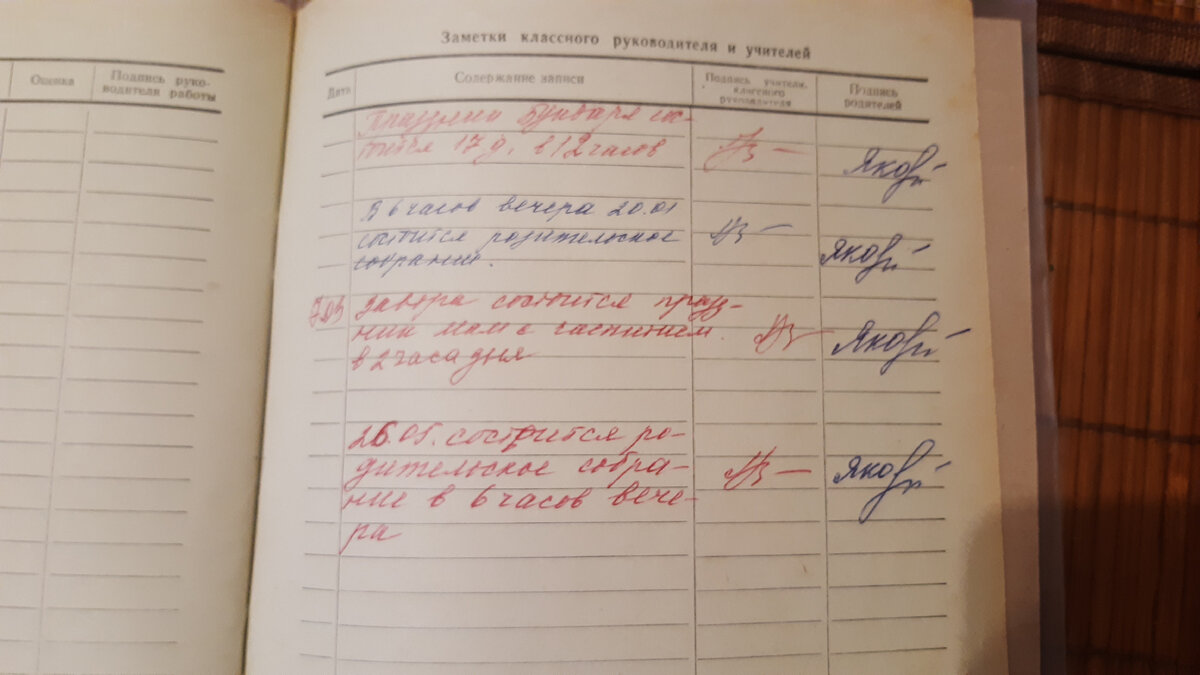 Оценка
Подпись руко-
водителя работы
Заметки классного руководителя и учителей
Дата
Содержание записи
Подпись учителя,
классного
руководителя
Подпись
родителей
Праздник Букваря сос-
тоится 17 д. в 12 часов
В 6 часов вечера 20.01
состоится родительское
собрание.
7.03 Завтра состоится празд-
ник мам с чаепитием
в 2 часа дня
26.05. состоится ро-
дительское собра-
ние в 6 часов вече-
ра